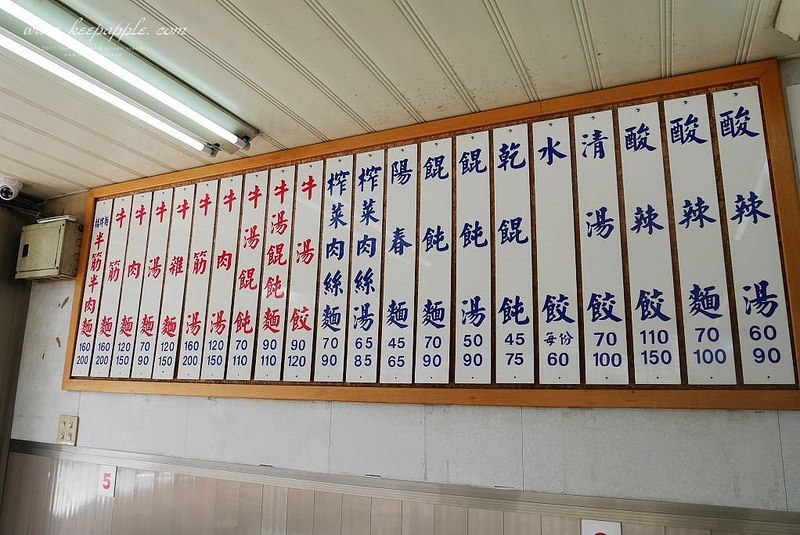 www.keepapple.com
酸辣湯 60 90
酸辣麵 70 100
酸辣餃 110 150
清湯餃 70 100
水餃 每份 60
乾餛飩 45 75
餛飩湯 50 90
餛飩麵 70 90
陽春麵 45 65
榨菜肉絲湯 65 85
榨菜肉絲麵 70 90
牛湯餃 90 120
牛湯餛飩麵 90 110
牛湯餛飩 70 110
牛肉湯 120 150
牛筋湯 160 200
牛雜麵 120 150
牛湯麵 70 90
牛肉麵 120 150
牛筋麵 160 200
半筋半肉麵 160 200
5